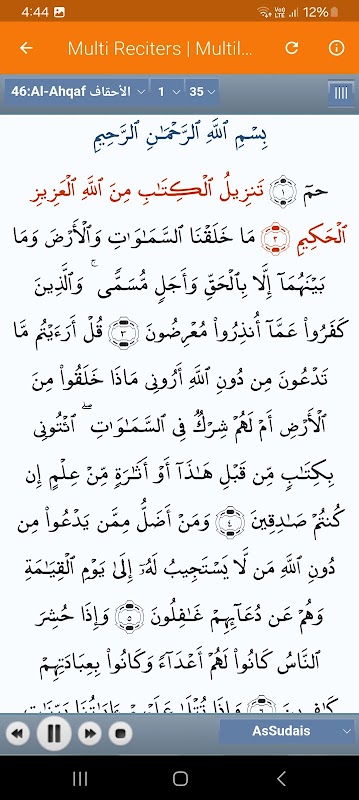 4:44 12%
Multi Reciters | Multil...
46:Al-Ahqaf الأحقاف 1 35
بِسْمِ ٱللَّهِ ٱلرَّحْمَـٰنِ ٱلرَّحِيمِ
حمٓ ١ تَنزِيلُ ٱلْكِتَـٰبِ مِنَ ٱللَّهِ ٱلْعَزِيزِ
ٱلْحَكِيمِ ٢ مَا خَلَقْنَا ٱلسَّمَـٰوَٰتِ وَٱلْأَرْضَ وَمَا
بَيْنَهُمَآ إِلَّا بِٱلْحَقِّ وَأَجَلٍ مُّسَمًّى ۚ وَٱلَّذِينَ
كَفَرُوا۟ عَمَّآ أُنذِرُوا۟ مُعْرِضُونَ ٣ قُلْ أَرَءَيْتُم مَّا
تَدْعُونَ مِن دُونِ ٱللَّهِ أَرُونِى مَاذَا خَلَقُوا۟ مِنَ
ٱلْأَرْضِ أَمْ لَهُمْ شِرْكٌ فِى ٱلسَّمَـٰوَٰتِ ۖ ٱئْتُونِى
بِكِتَـٰبٍ مِّن قَبْلِ هَـٰذَآ أَوْ أَثَـٰرَةٍ مِّنْ عِلْمٍ إِن
كُنتُمْ صَـٰدِقِينَ ٤ وَمَنْ أَضَلُّ مِمَّن يَدْعُوا۟ مِن
دُونِ ٱللَّهِ مَن لَّا يَسْتَجِيبُ لَهُۥٓ إِلَىٰ يَوْمِ ٱلْقِيَـٰمَةِ
وَهُمْ عَن دُعَآئِهِمْ غَـٰفِلُونَ ٥ وَإِذَا حُشِرَ
ٱلنَّاسُ كَانُوا۟ لَهُمْ أَعْدَآءً وَكَانُوا۟ بِعِبَادَتِهِمْ
كَـٰفِرِينَ ٦ وَإِذَا تُتْلَىٰ عَلَيْهِمْ ءَايَـٰتُنَا بَيِّنَـٰتٍ
AsSudais